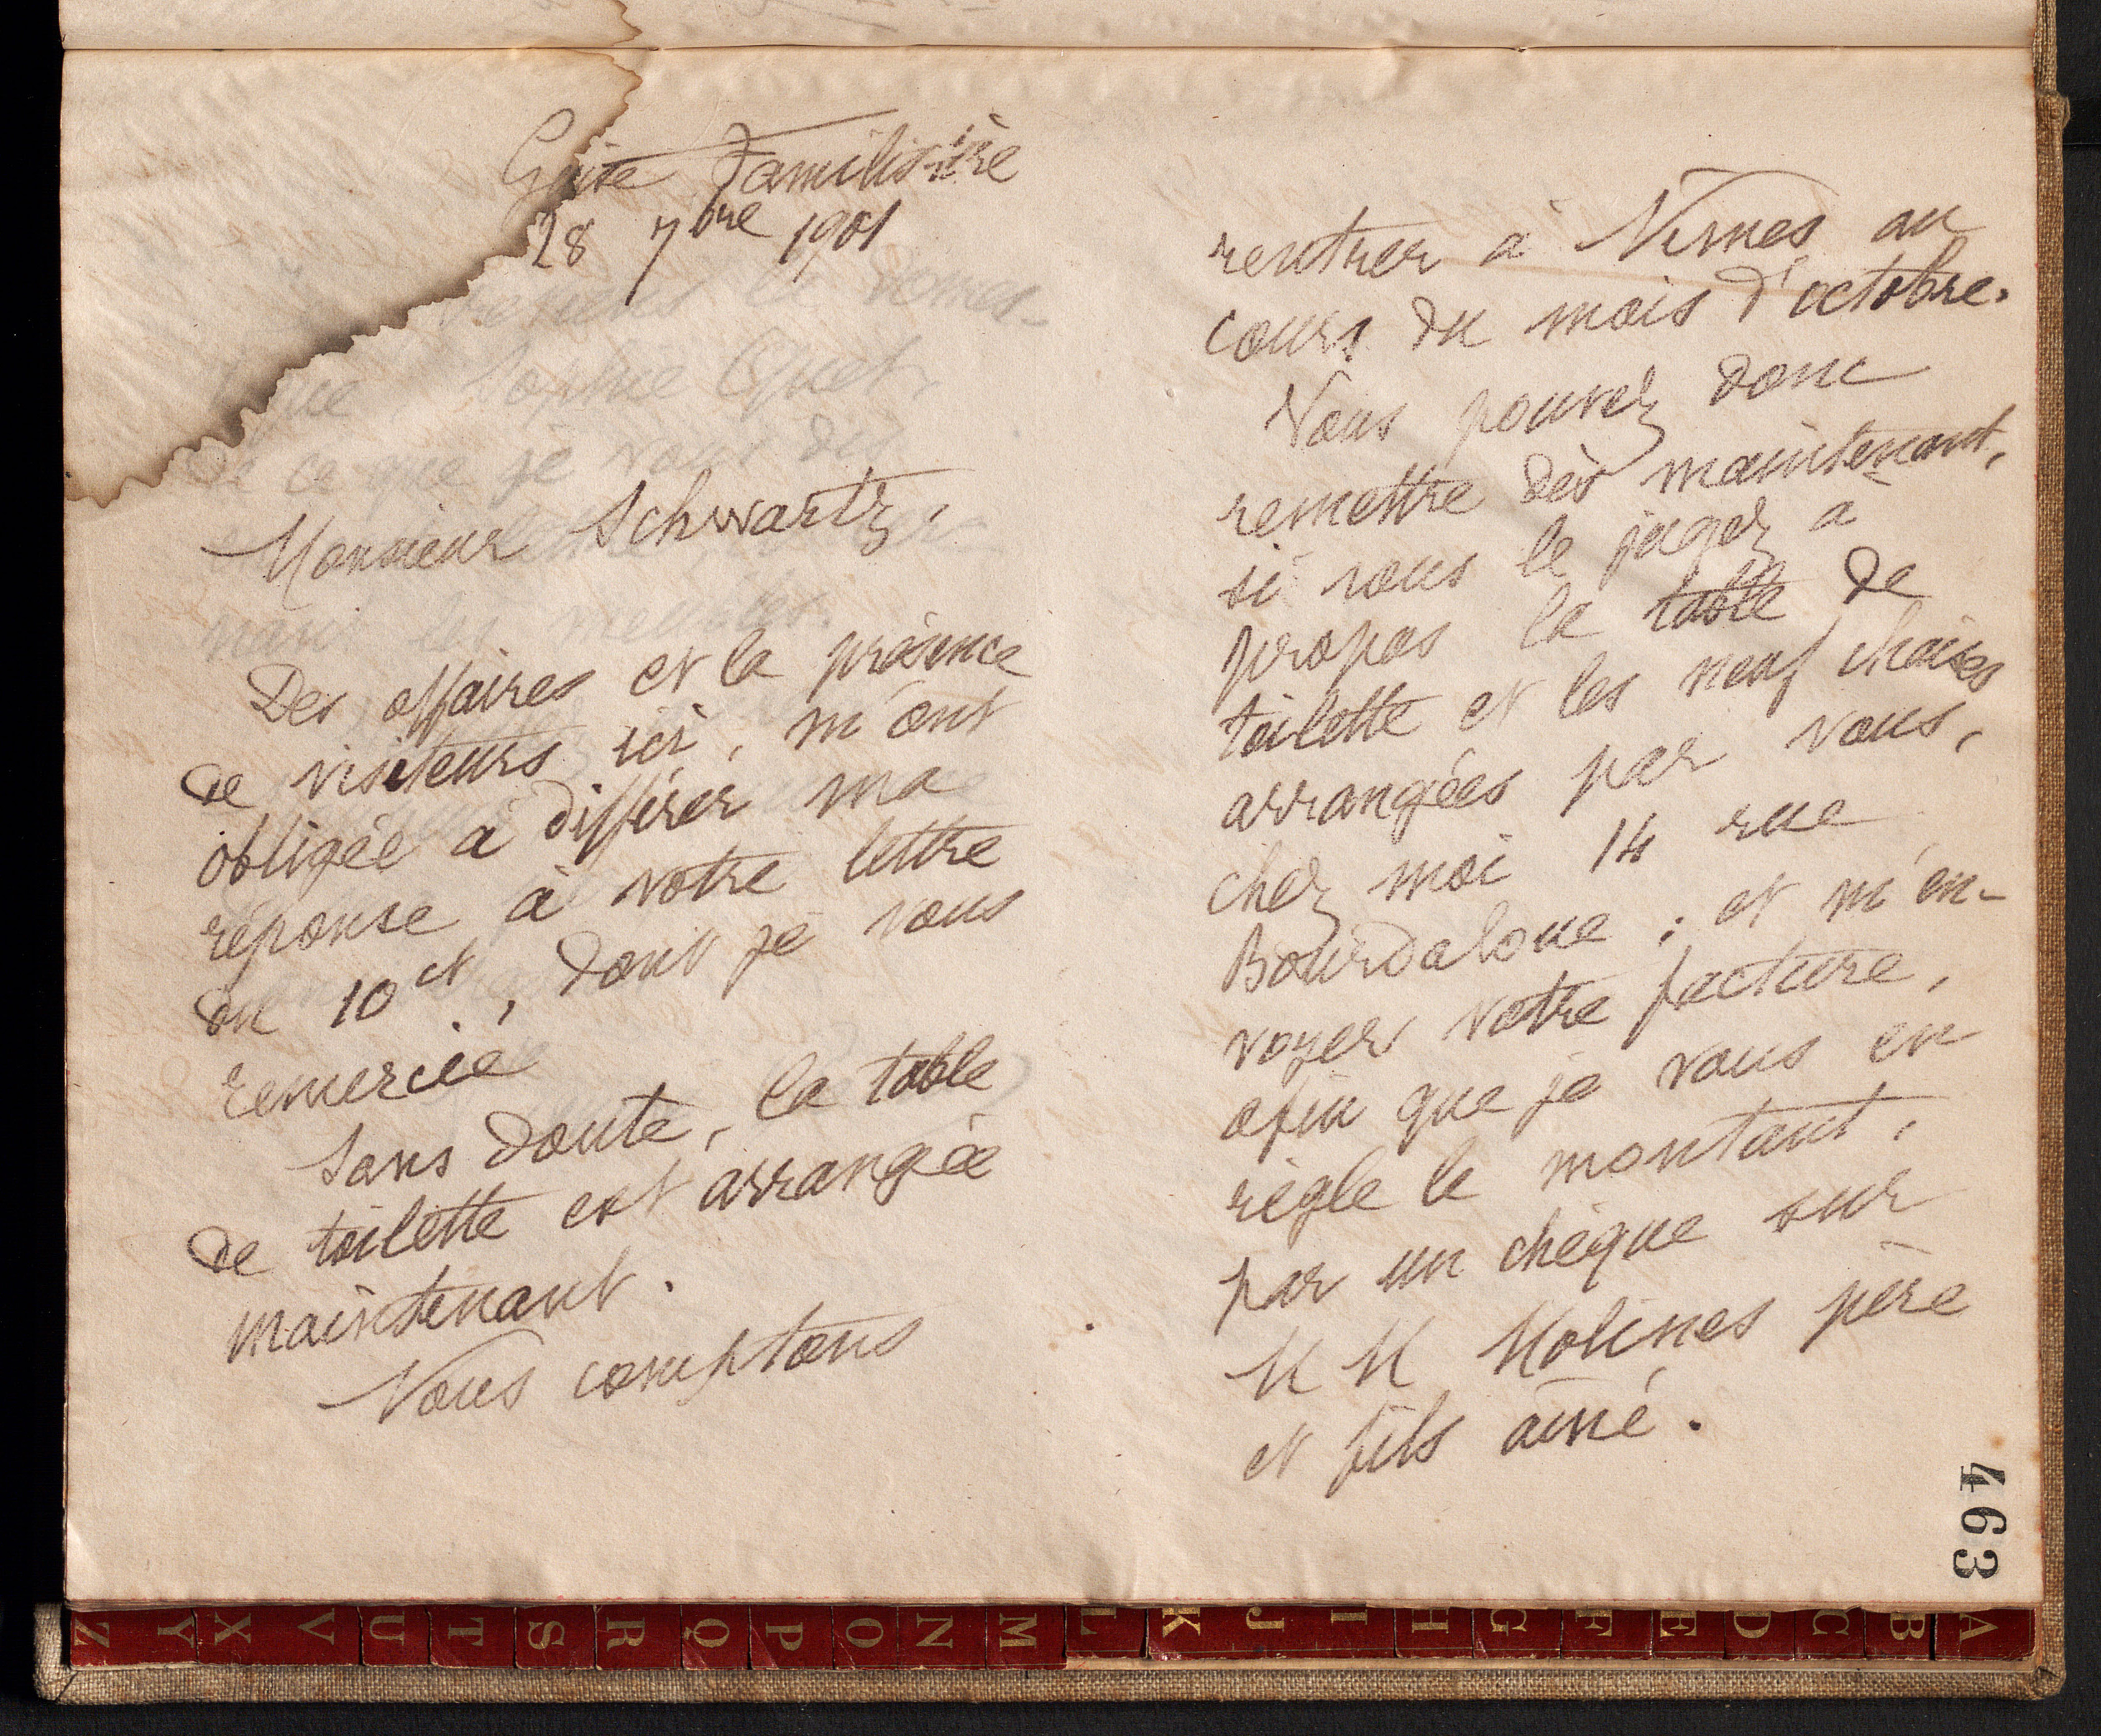 Guise Familistère
28 7bre 1901
Monsieur Schwartz,
Des affaires et la présence
de visiteurs ici, m'ont
obligée à différer ma
réponse à votre lettre
du 10 ct, dont je vous
remercie
Sans doute, la table
de toilette est arrangée
maintenant.
Nous comptons
rentrer à Nîmes au
cours du mois d'octobre.
Vous pouvez donc
remettre dès maintenant,
si vous le jugez à
propos la table de
toilette et les neuf chaises
arrangées par vous,
chez moi 14 rue
Bourdaloue ; et m'en-
voyer votre facture,
afin que je vous en
règle le montant,
par un chèque sur
MM Molines père
et fils aîné.
463
Z Y X V U T S R Q P O N M L K J I H G F E D C B A